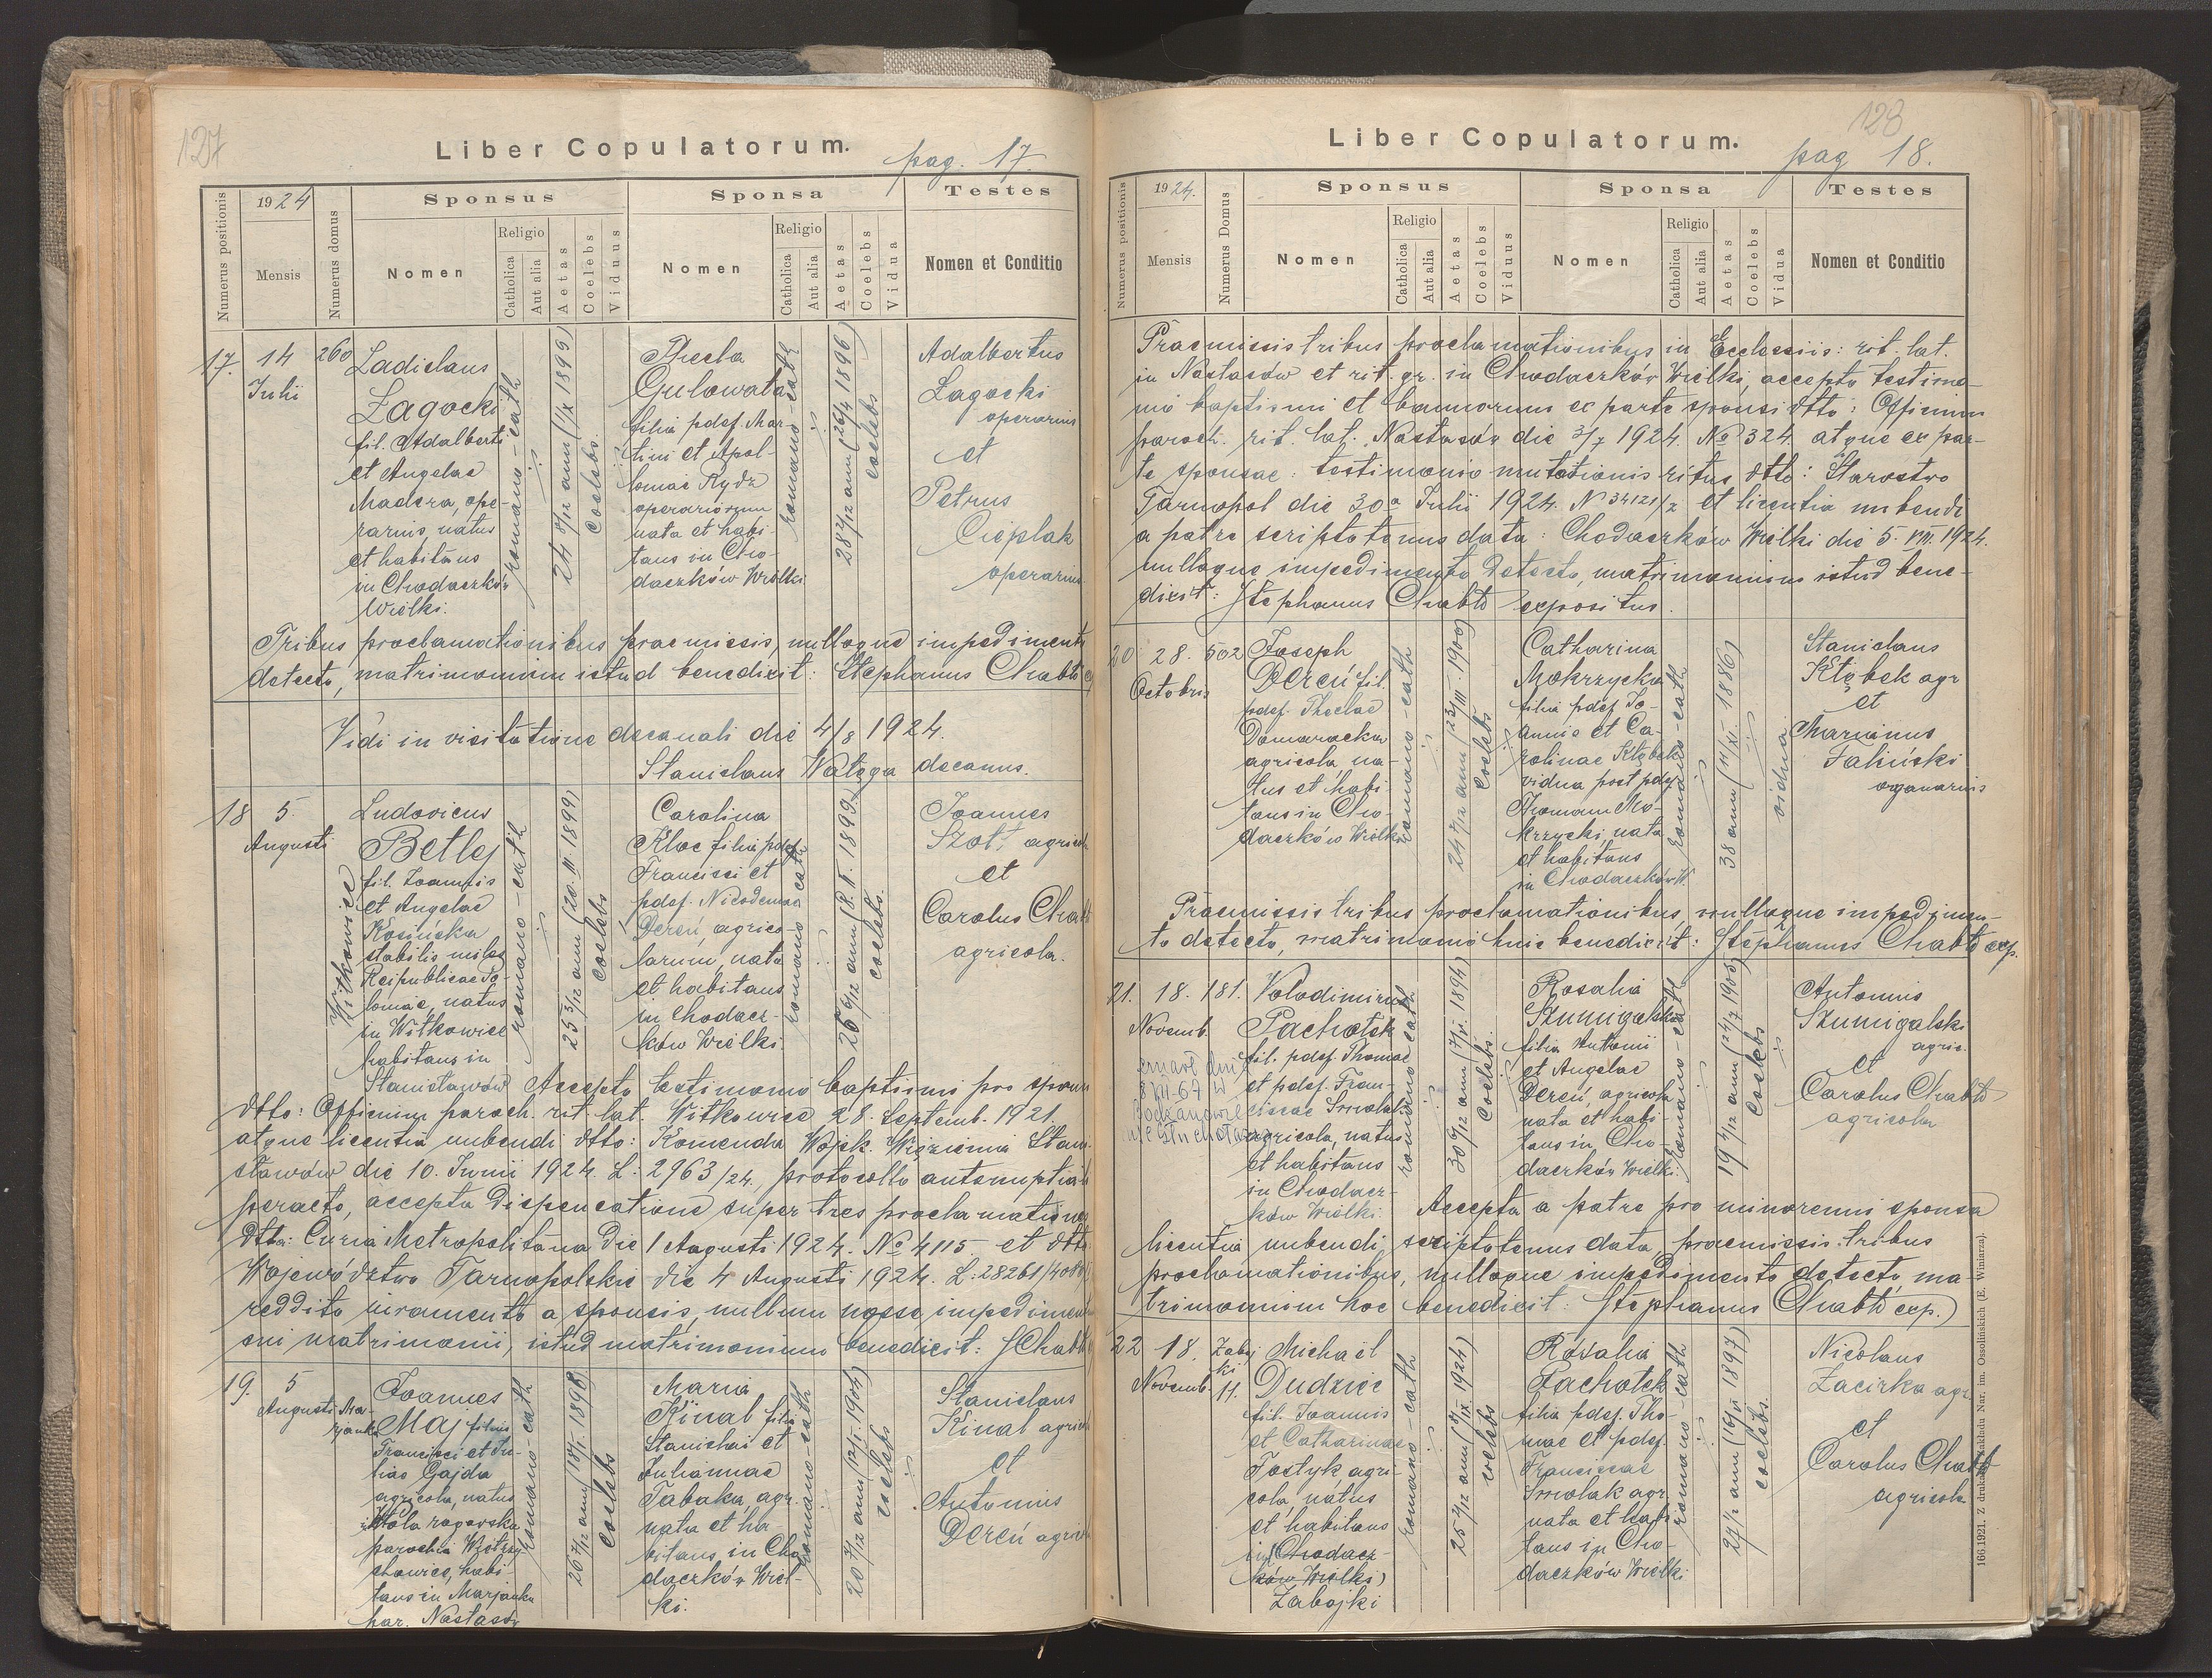 127
Liber Copulatorum.
pag. 17.
Numerus positionis
1924
Mensis
Numerus domus
Sponsus
Nomen
Religio
Catholica
Aut alia
Aetas
Coelebs
Viduus
Sponsa
Nomen
Religio
Catholica
Aut alia
Aetas
Coelebs
Vidua
Testes
Nomen et Conditio
17.
14
Julii
260
Ladislaus
Zagocki
fil. Adalberti
et Angelae
Madera, ope-
rarius, natus
et habitans
in Chodaczków
Wielki.
romano-cath
24 ann
coelebs.
Thecla
Gulowata
filia pdef. Mar-
tini et Apol-
loniae Rydz
operariorum
nata et habi-
tans in Cho-
daczków Wielki
romano-cath
28 2/12 ann (26/4 1896)
coelebs
Adalbertus
Zagocki
operarius
et
Petrus
Cieplak
operarius
Tribus proclamationibus praemissis, nulloque impedimento
detecto, matrimonium istud benedixit: Stephanus Chabło
Vidi in visitatione decanali die 4/8 1924.
Stanislaus Wałęga decanus.
18
5.
Augusti
Witkowice
Ludovicus
Betlej
fil. Joannis
et Angelae
Kosińska
stabilis miles
Reipublicae Po-
loniae, natus
in Witkowice
habitans in
Stanisławów
romano-cath
25 5/12 ann (20. III 1899)
coelebs
Carolina
Kloc filia pdef.
Francisci et
pdef. Nicodemae
Dereń, agrico-
larum, nata
et habitans
in Chodacz-
ków Wielki.
romano cath
coelebs.
Joannes
Szot, agricola
et
Carolus Chabło
agricola.
Accepto testimonio baptismi pro sponso
dtto: Officium paroch. rit. lat. Witkowice 28. Septemb. 1921.
atque licentia nubendi dtto: Komenda Wojsk. Więzienia Stani-
sławów die 10. Junii 1924. L: 2963/24., protocollo antenuptiali
peracto, accepta dispensatione super tres proclamationes
dtta: Curia Metropolitana die 1 Augusti 1924. No 4115 et dtto
Województwo Tarnopolskie die 4 Augusti 1924. L: 28261
reddito iuramento a sponsis, nullum nosse impedimentum
sui matrimonii, istud matrimonium benedixit: SChabło
19.
5
Augusti
Mar-
janka
Joannes
Maj filius
Francisci et Ju-
liae Gajda
agricola, natus
Wola rogowska
parochia Wietrzy-
chowice, habi-
tans in Marjanka
par. Nastasów
romano-cath
coelebs
Maria
Kinal filia
Stanislai et
Juliannae
Tabaka, agr.
nata et ha-
bitans in Cho-
daczków Wiel-
ki.
romano-cath
coelebs
Stanislaus
Kinal agricola
et
Antonius
Dereń agricola
128
Liber Copulatorum.
pag 18.
Numerus positionis
1924.
Mensis
Numerus Domus
Sponsus
Nomen
Religio
Catholica
Aut alia
Aetas
Coelebs
Viduus
Sponsa
Nomen
Religio
Catholica
Aut alia
Aetas
Coelebs
Vidua
Testes
Nomen et Conditio
Praemissis tribus proclamationibus in Ecclesiis: rit. lat.
in Nastasów et rit. gr. in Chodaczków Wielki, accepto testimo-
nio baptismi et bannorum ex parte sponsi dtto: Officium
paroch. rit. lat. Nastasów die 3/7 1924. No 324. atque ex par-
te sponsae: testimonio mutationis ritus dtto: Starostwo
Tarnopol die 30a Julii 1924. N 34121/2 et licentia nubendi
a patre scriptotenus data: Chodaczków Wielki die 5. VIII. 1924.
nulloque impedimento detecto, matrimonium istud bene-
dixit: Stephanus Chabło expositus.
20
28.
Octobris
502
Joseph
Dereń fil.
pdef. Theclae
Domaracka
agricola, na-
tus et habi-
tans in Cho-
daczków Wielki
romano-cath
24 7/12 ann (23/III. 1900)
coelebs
Catharina
Mokrzycka
filia pdef. Jo-
annis et Ca-
rolinae Kłębek
vidua post pdef.
Thomam Mo-
krzycki, nata
et habitans
in Chodaczków W.
romano-cath
38 ann (11/XI. 1886)
vidua
Stanislaus
Kłębek agr
et
Marianus
Faliński
organarius
Praemissis tribus proclamationibus, nulloque impedimen-
to detecto, matrimonio huic benedixit: Stephanus Chabło exp.
21.
18.
Novemb.
181.
Volodimirus
Pachołek
fil. pdef. Thomae
et pdef. Fran-
ciscae Smolak
agricola, natus
et habitans
in Chodacz-
ków Wielki.
zmarł dnia
8 III 67 w
romano-cath
coelebs.
Rosalia
Szumigalska
filia Antonii
et Angelae
Dereń, agricola
nata et habi-
tans in Cho-
daczków Wielki.
romano-cath
19 4/12 ann (24/7 1905)
coelebs
Antonius
Szumigalski
agric.
et
Carolus Chabło
agricola
Accepta a patre pro minorenni sponsa
licentia nubendi, scriptotenus data, praemissis tribus
proclamationibus, nulloque impedimento detecto, ma-
trimonium hoc benedixit: Stephanus Chabło exp.
22
18.
Novemb.
Zaboj
ki
11.
Michael
Dudzic
fil. Joannis
et Catharinae
Tostyk, agri-
cola, natus
et habitans
in (Chodacz-
ków Wielki)
Zabojki
romano-cath
coelebs
Rosalia
Pachołek
filia pdef. Tho-
mae et pdef.
Franciscae
Smolak agr.
nata et habi-
tans in Cho-
daczków Wielki
romano-cath
coelebs.
Nicolaus
Zacirka agr.
et
Carolus Chabło
agricola
166.1921. Z drukarni Zakładu Nar. im. Ossolińskich (E. Winiarza).